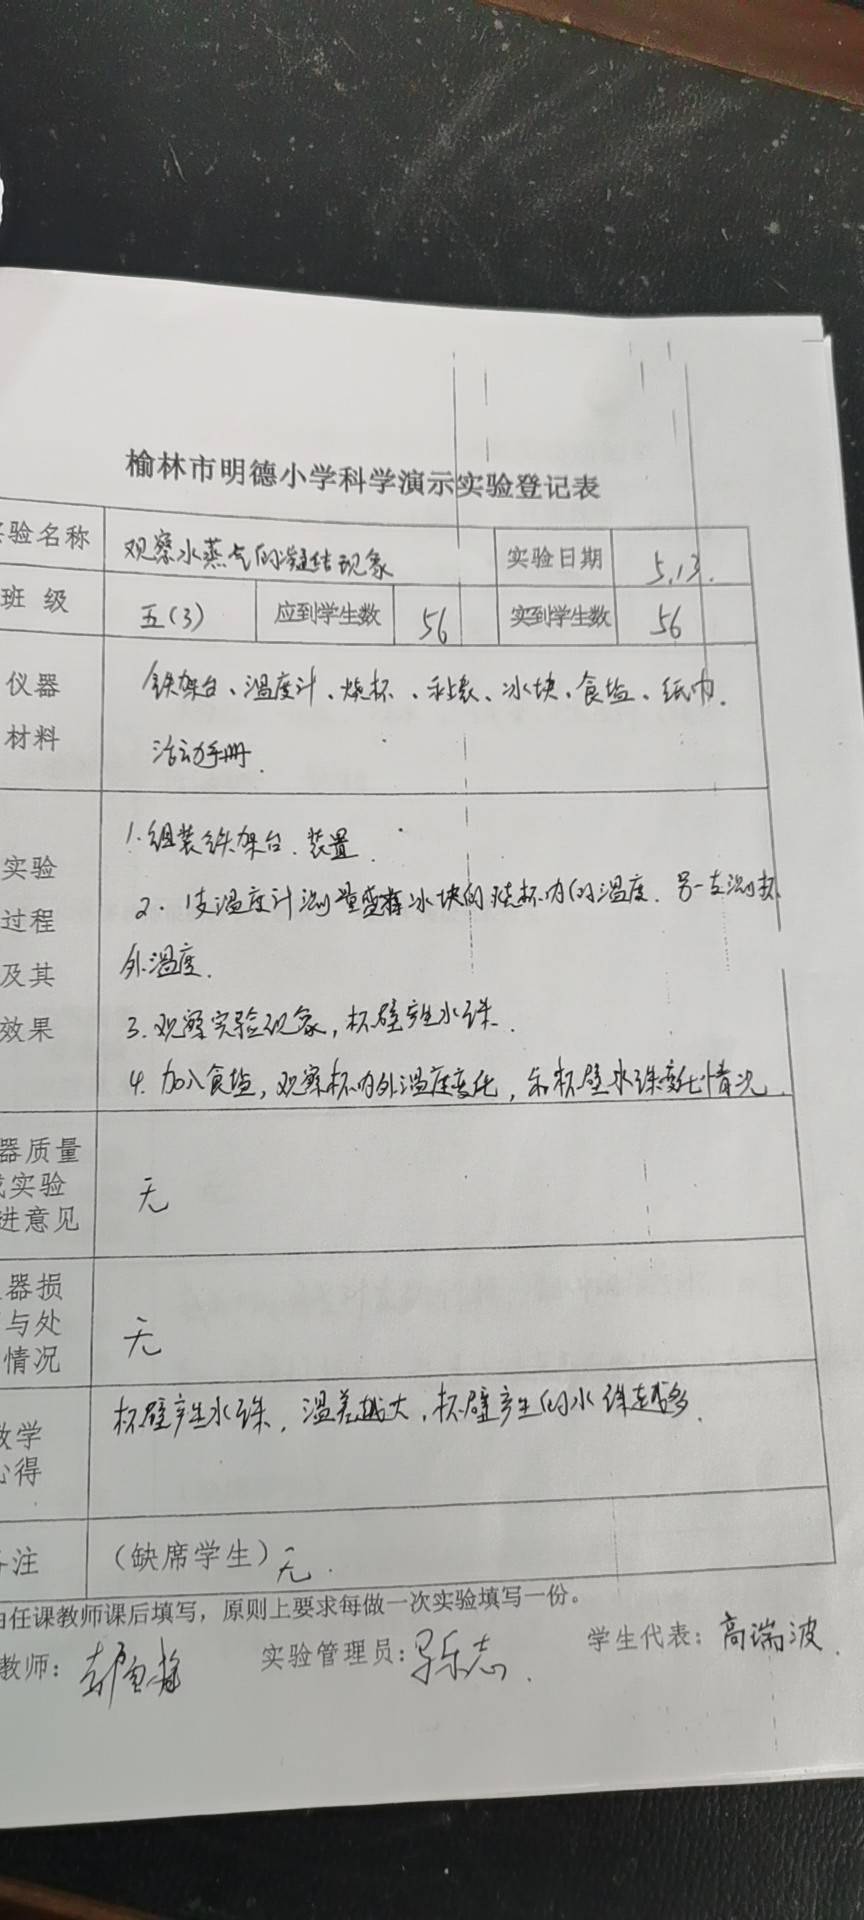 榆林市明德小学科学演示实验登记表
验名称 观察水蒸气的凝结现象 实验日期 5.13.
班 级 五(3) 应到学生数 56 实到学生数 56
仪器 铁架台、温度计、烧杯、秒表、冰块、食盐、纸巾.
材料 活动手册.
1.组装铁架台.装置.
实验
2. 1支温度计测量盛有冰块的烧杯内的温度.另一支测杯
过程
外温度.
及其
3.观察实验现象,杯壁产生水珠.
效果
4.加入食盐,观察杯内外温度变化,和杯壁水珠变化情况.
器质量
实验
进意见
无
器损
与处
情况
无
杯壁产生水珠,温差越大,杯壁产生的水珠越多.
学
心得
注 (缺席学生)无.
由任课教师课后填写,原则上要求每做一次实验填写一份。
教师: 实验管理员: 学生代表:高瑞波.